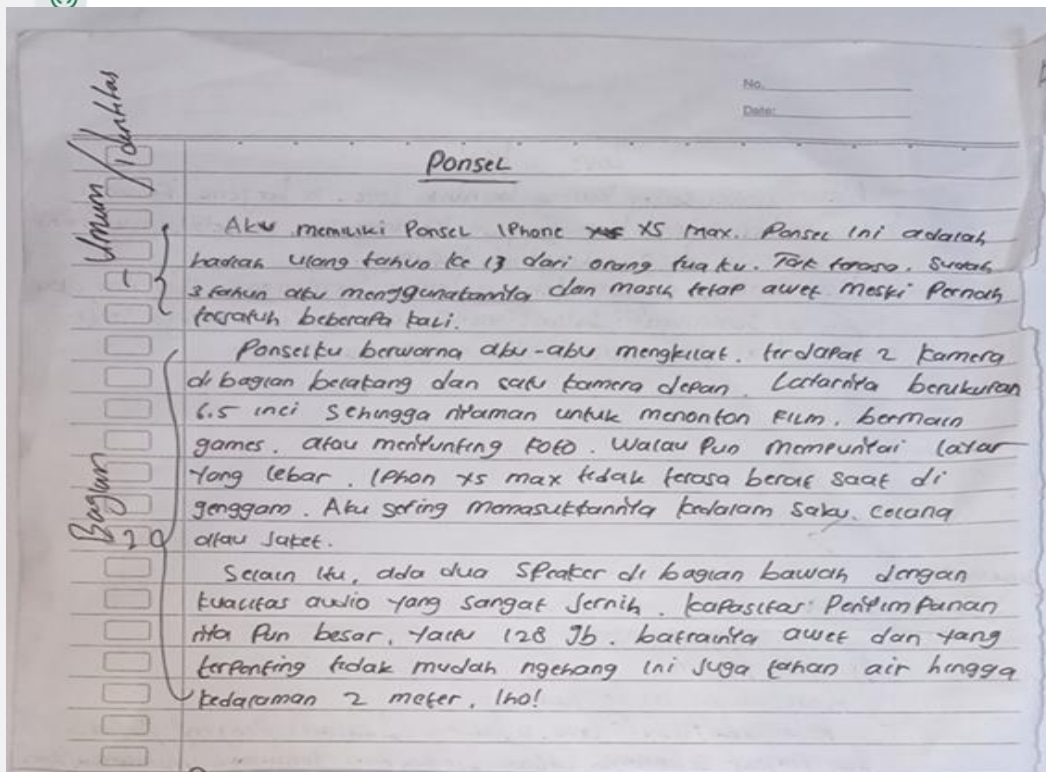 No.
Date:
Umum / Identitas
Ponsel
Aku memiliki Ponsel iPhone XS XS max. Ponsel ini adalah
hadiah ulang tahun ke 13 dari orang tua ku. Tak terasa. Sudah
3 tahun aku menggunakannya dan masih tetap awet meski Pernah
terjatuh beberapa kali.
Ponselku berwarna abu-abu mengkilat. terdapat 2 kamera
di bagian belakang dan satu kamera depan. Layarnya berukuran
6.5 inci Sehingga nyaman untuk menonton Film. bermain
games. atau menyunting Foto. Walau Pun mempunyai layar
yang lebar. iPhon xs max tidak terasa berat saat di
genggam. Aku sering memasukkannya kedalam Saku. celana
atau Jaket.
Bagian 2
Selain itu, ada dua Speaker di bagian bawah dengan
kualitas audio yang sangat Jernih. kapasitas Penyimpanan
nya Pun besar. yaitu 128 gb. batrainya awet dan yang
terpenting tidak mudah ngehang ini Juga tahan air hingga
kedalaman 2 meter. lho!